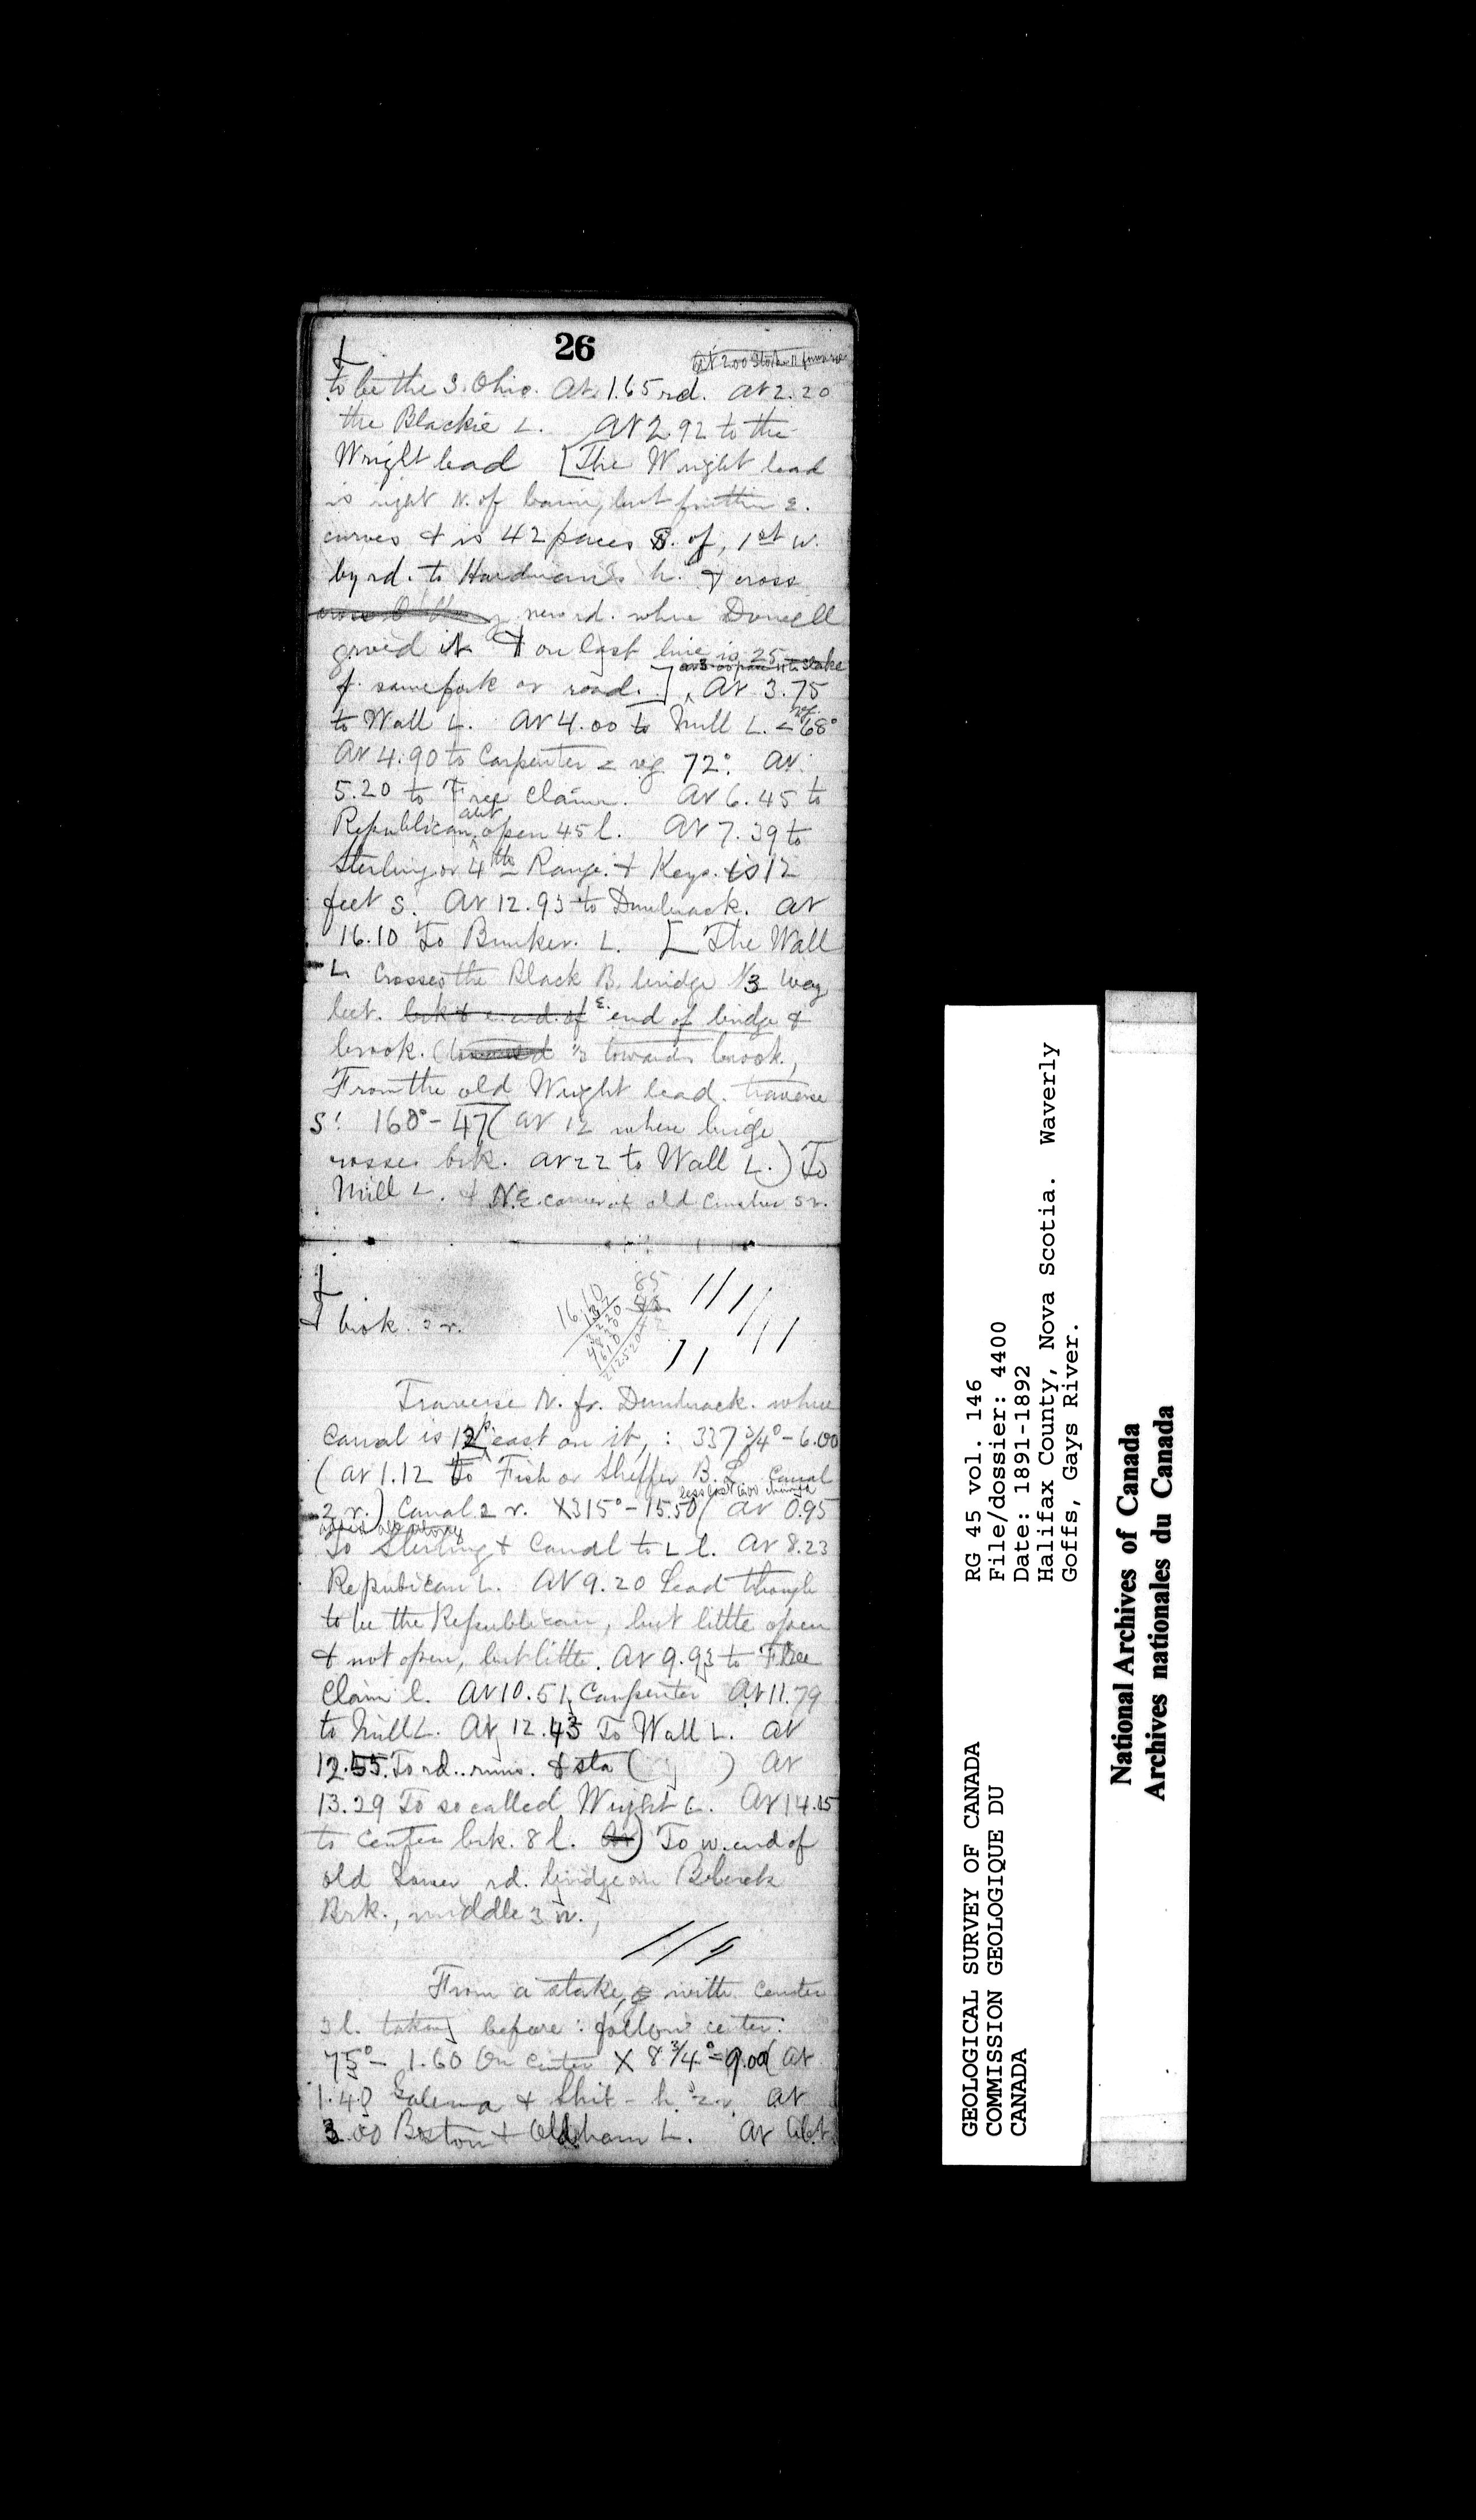 26
to be the S. Ohio. At 1.65 rd. At 2.20
the Blackie L. At 2.92 to the
Wright lead [The Wright lead
is right N. of but further E.
curves & is 42 paces S. of, 1st w.
by rd. to Hardman's h. & cross
new rd. where
it & on last line is 25
f. same fork or road.] At 3.75
to Wall L. At 4.00 to Mill L. < 68°
At 4.90 to Carpenter < 72°. At
5.20 to Free Claim. At 6.45 to
Republican, abt open 45 l. At 7.39 to
Sterling or 4th Range. & Keys. is 12
feet S. At 12.93 to Dunbrack. At
16.10 To Bunker. L. [The Wall
L crosses the Black B. bridge 1/3 way
bet. E. end of bridge &
brook. ( 1/3 towards brook,
From the old Wright lead. traverse
S: 160° - 47 (At 12 where bridge
crosses brk. At 22 to Wall L.) To
Mill L. & N.E. corner of old crusher 5 r.
& brok. 2 r.
16.10
85
Traverse N. fr. Dunbrack. where
Canal is 12 p. east on it,: 337 3/4° - 6.00
(At 1.12 To Fish or Sheffer B. L. Canal
2 r.) Canal 2 r. X 315° - 15.50 (At 0.95
To Sterling & Canal to L l. At 8.23
Republican L. At 9.20 Lead though
to be the Republican, but little open
& not open, but little. At 9.93 to Free
Claim l. At 10.51 Carpenter At 11.79
to Mill L. At 12.43 To Wall L. At
12.55. To rd. runs. & sta ( ) At
13.29 To so called Wright L. At 14.15
to center brk. 8 l. To w. end of
old rd. bridge on
Brk., middle 3 w.,
From a stake, with center
3 l. taking before: follow center:
75° - 1.60 On center X 8 3/4° = 9.00 (At
1.40 Galena & Shit - h. 2 r. At
3.00 Boston & Oldham L. At Abt.
GEOLOGICAL SURVEY OF CANADA
COMMISSION GEOLOGIQUE DU
CANADA
RG 45 vol. 146
File/dossier: 4400
Date: 1891-1892
Halifax County, Nova Scotia. Waverly
Goffs, Gays River.
National Archives of Canada
Archives nationales du Canada